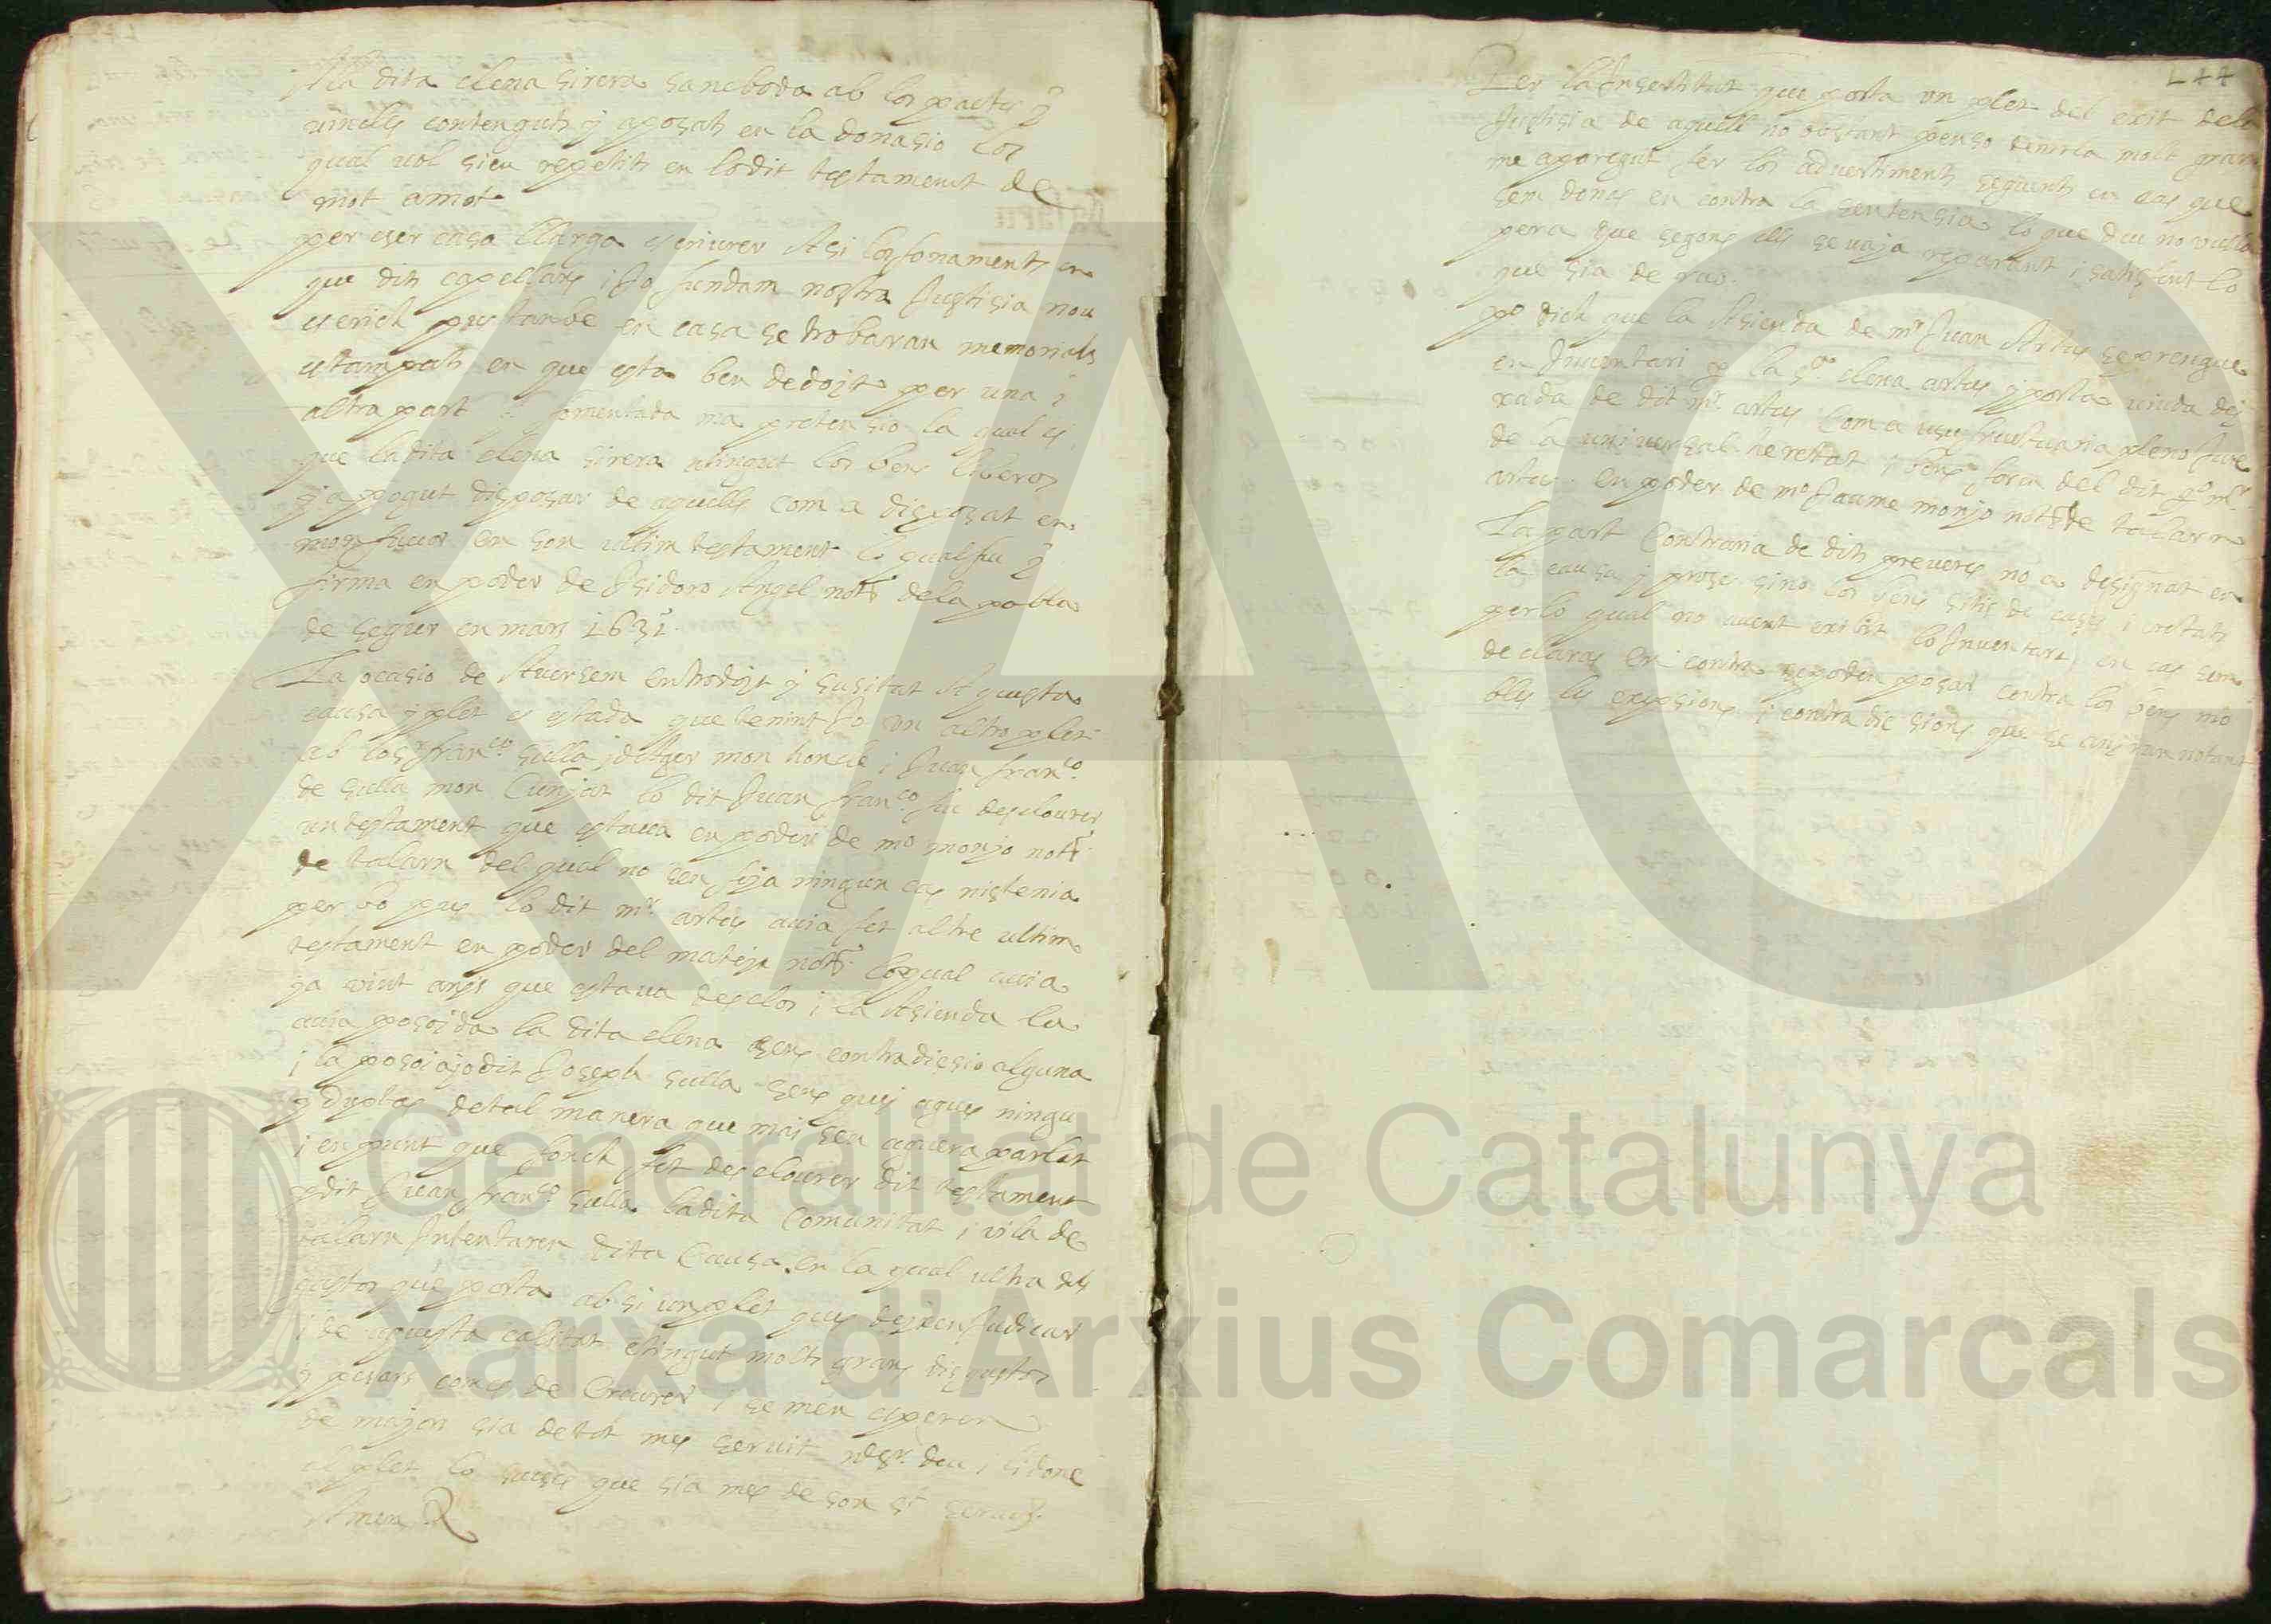 A la dita elena sirera sa neboda ab los pactes y
vincles contenguts y aposats en la donasio los
qual vol sien repetits en lo dit testament de
mot a mot
per esser cosa llarga escriurer Asi los fonaments en
que dits capellans i Jo fundam nostra Justisia nou
escrich pus tambe en casa se trobaran memorials
estampats en que esta ben dedoyt per una i
altra part fomentada ma pretensio la qual es
que la dita elena sirera atingut los bens liberos
y a pogut disposar de aquells com a disposat en
mon favor en son ultim testament lo qual feu y
firma en poder de Isidoro Angel nott dela pobla
de segur en mars 1631.
La ocasio de Aversem entrodoyt y susitat Aquesta
causa y plet es estada que tenint Jo un altro plet
ab los fran.co sulla y de Atger mon honcle i Juan fran.co
de sulla mon Cunyat lo dit Juan fran.co feu desclourer
un testament que estava en poder de mo monjo nott
de talarn del qual no sen feya ningun cas nis tenia
per bo pus lo dit mr artus avia fet altre ultim
testament en poder del mateix nott lo qual avia
ja vint anys que estava desclos i la Asienda la
avia posoida la dita elena sens contradicsio alguna
i la posoia jo dit Joseph sulla sens quey agues ningu
y duptas de tal manera que mai sen aguera parlat
i en punt que fonch fet desclourer dit testament
p dit Juan fran.co sulla la dita Comunitat i vila de
talarn Intentaren dita Causa. en la qual ultra dels
gastos que porta ab si un plet ques dexen Judicar
i de aquesta calitat etingut molts grans disgustos
y pesars com es de Creurer i se men esperen
de majors sia de tot mes servit nostr. deu i li done
al plet lo suces que sia mes de son st servey.
Amen
L44
Per la Insertitut que porta un plet del exit dela
Justisia de aquell no obstant penso tenirla molt gran
me aparegut fer los advertiments seguents en cas que
sem dones en contra la sentensia lo que deu no vulla
pera que segons ells se vaja reparant i satisfent lo
que sia de rao.
po dich que la Asienda de mr Juan Artus se prengue
en Inventari p la sa elena artus y porta viuda dey
xada de dit mr artus Com a usufructuaria pleno Jure
de la universal heretat i bens foren del dit qo mr
artus. en poder de mo Jaume monjo nott de talarn
La part Contraria de dits preveres no a designat en
la causa y proses sino los bens sitis de cases i eretats
perlo qual no avent exibit lo Inventari, en cas sem
declaras en contra se poden posar contra los bens mo
bles les exepsions i contradicsions que se aniran notant